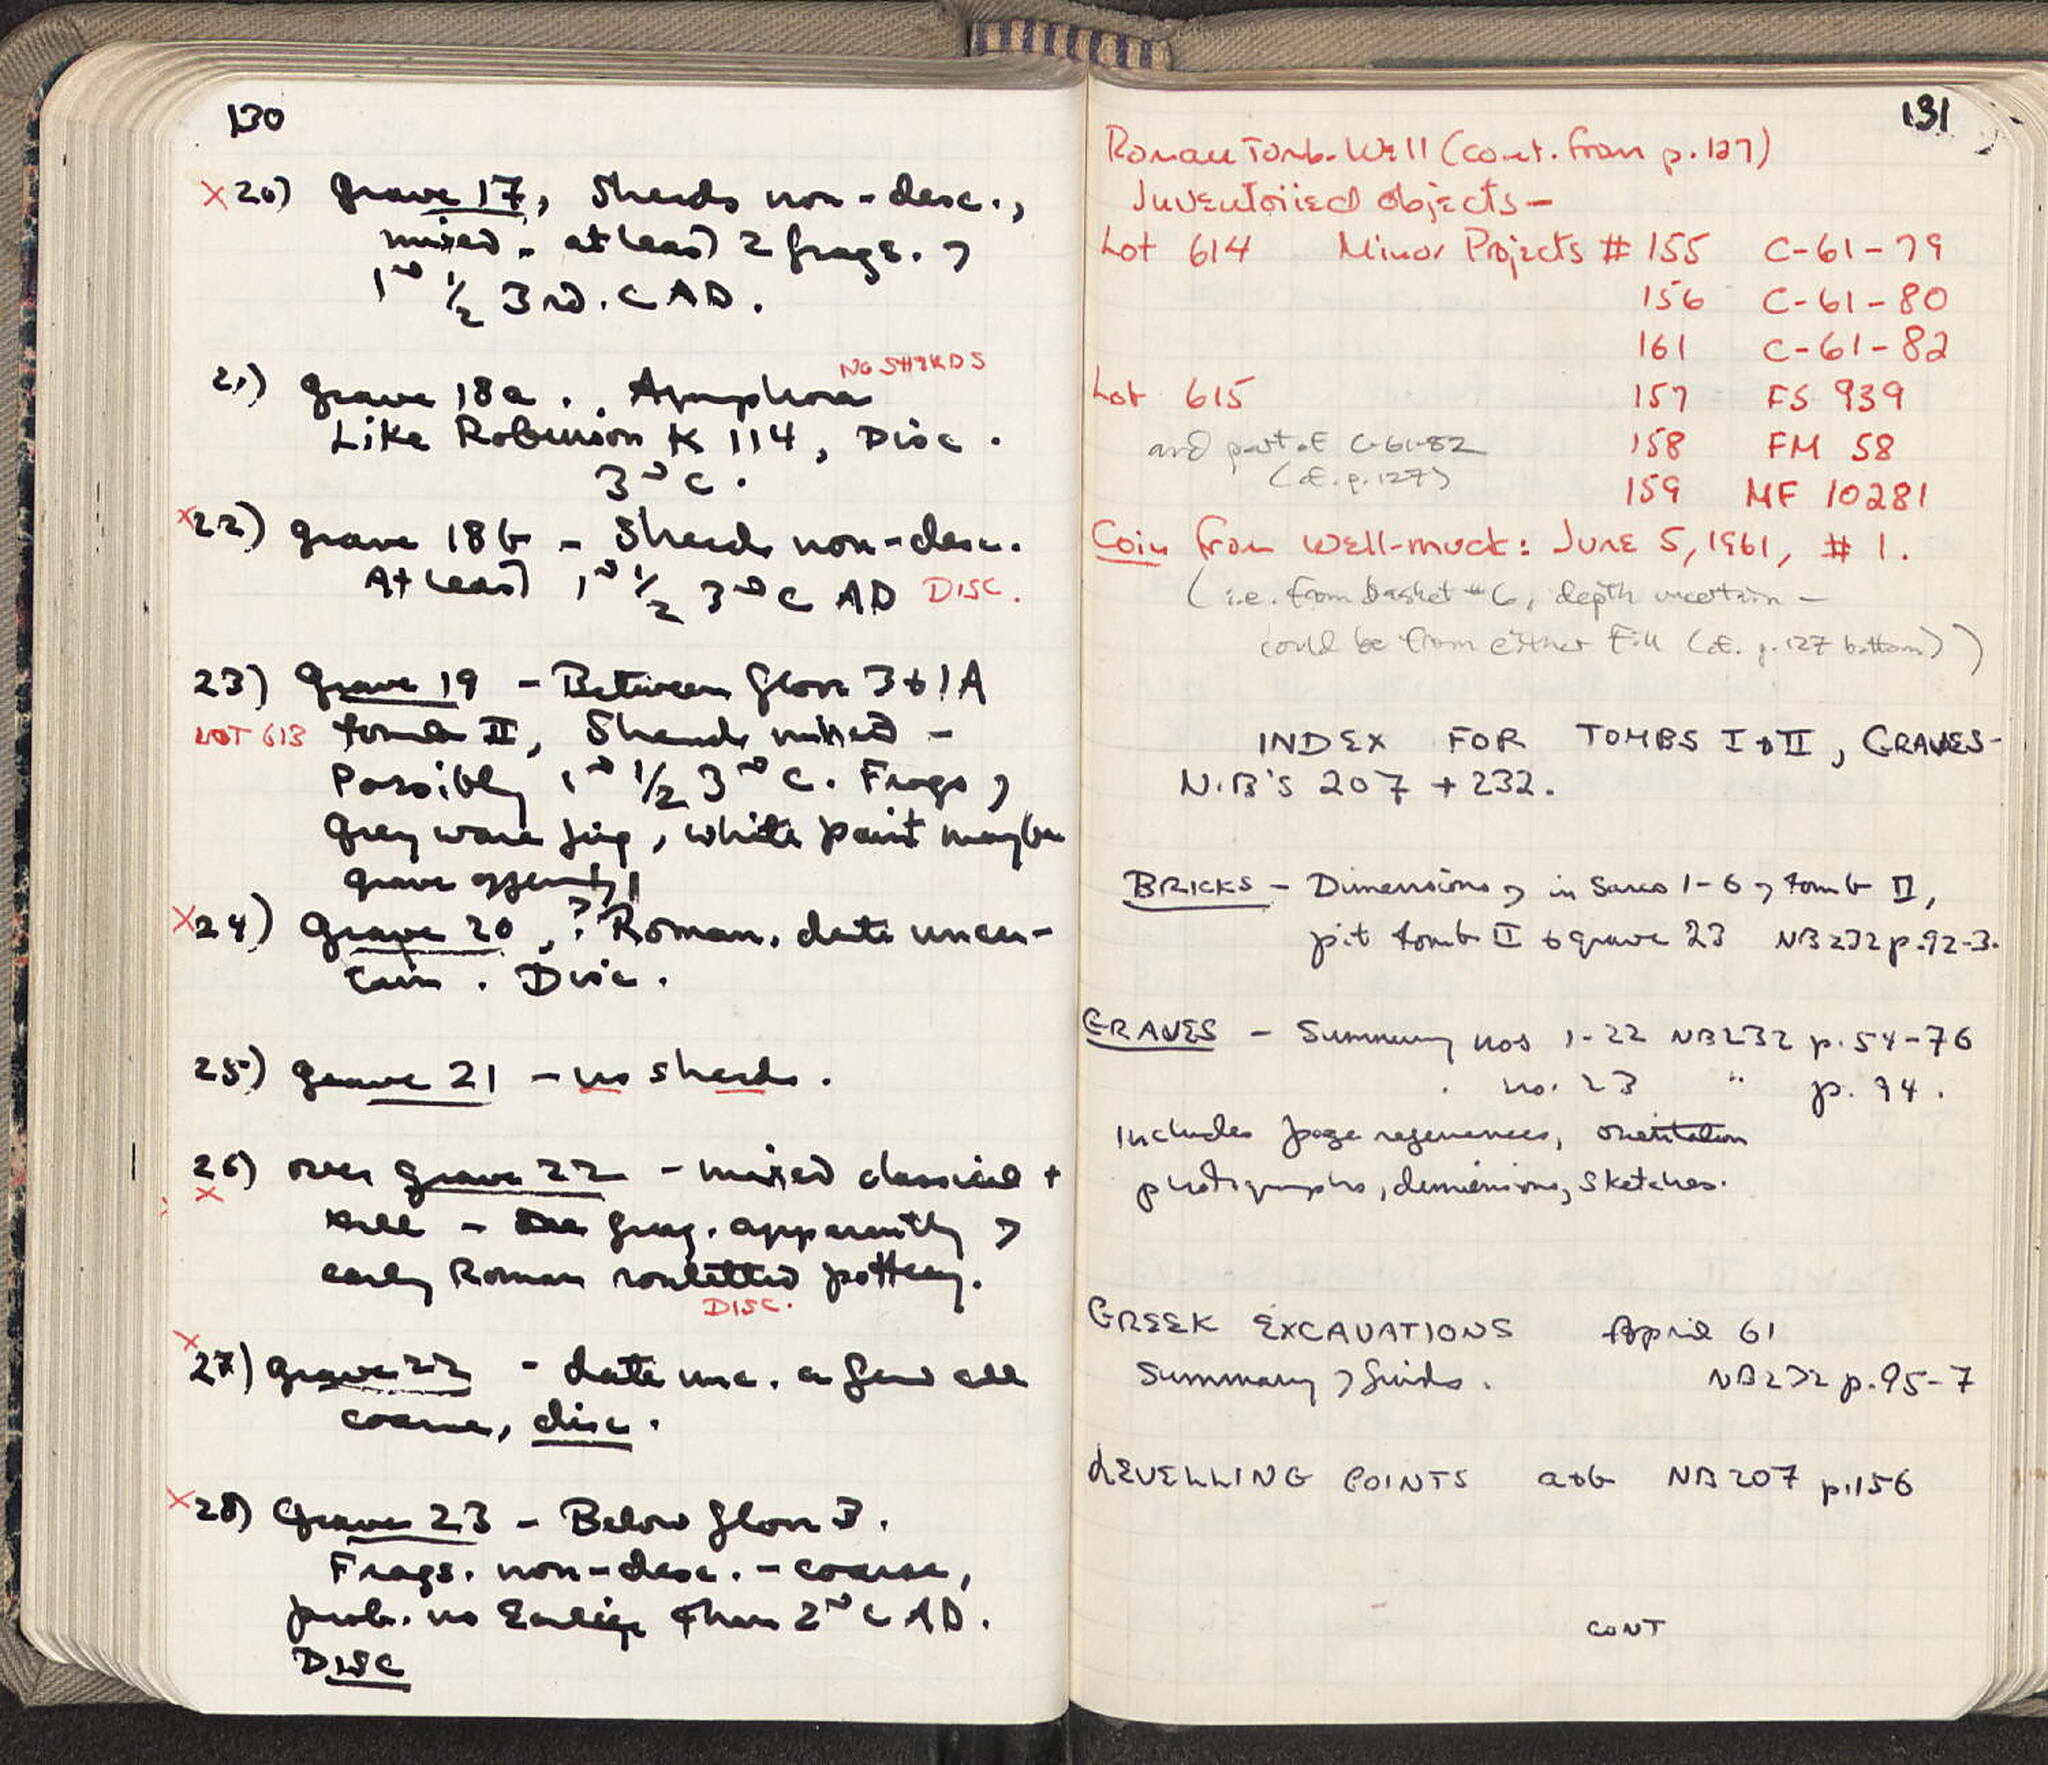 130
X 20) Grave 17, Sherds non-desc.,
mixed - at least 2 frags. of
1st 1/2 3rd. C AD.
NO SHERDS
21) Grave 18a. . Amphora
Like Robinson K 114, Disc.
3rd C.
X 22) grave 18b - Sherds non-desc.
At least 1st 1/2 3rd C AD DISC.
23) Grave 19 - Between floor 3 & 1A
LOT 613 tomb II, Sherds mixed -
Possibly 1st 1/2 3rd C. Frags of
Grey ware jug, white paint maybe
grave offering
X 24) Grave 20, ? Roman. date uncer-
tain. Disc.
25) grave 21 - no sherds.
26) over grave 22 - mixed classical +
X Hell - frag. apparently of
early Roman rouletted pottery.
DISC.
X 27) grave 22 - date unc. a few all
coarse, disc.
X 28) Grave 23 - Below floor 3.
Frags. non-desc. - coarse,
prob. no Earlier than 2nd C AD.
DISC
131
Roman Tomb-Well (cont. from p. 127)
Inventoried Objects -
Lot 614 Minor Projects # 155 C-61-79
156 C-61-80
161 C-61-82
Lot 615 157 FS 939
and part of C-61-82 158 FM 58
(cf. p. 127) 159 MF 10281
Coin from well-muck: June 5, 1961, # 1.
(i.e. from basket #6, depth uncertain -
could be from either fill (cf. p. 127 bottom))
INDEX FOR TOMBS I & II, GRAVES -
N.B'S 207 + 232.
BRICKS - Dimensions of in Sarcs 1-6 of tomb II,
pit tomb II & grave 23 NB 232 p. 92-3.
GRAVES - Summary nos 1-22 NB 232 p. 54-76
" no. 23 " p. 94.
Includes page references, orientation
photographs, dimensions, sketches.
GREEK EXCAVATIONS April 61
Summary of finds. NB 232 p. 95-7
LEVELLING POINTS a & b NB 207 p. 156
CONT